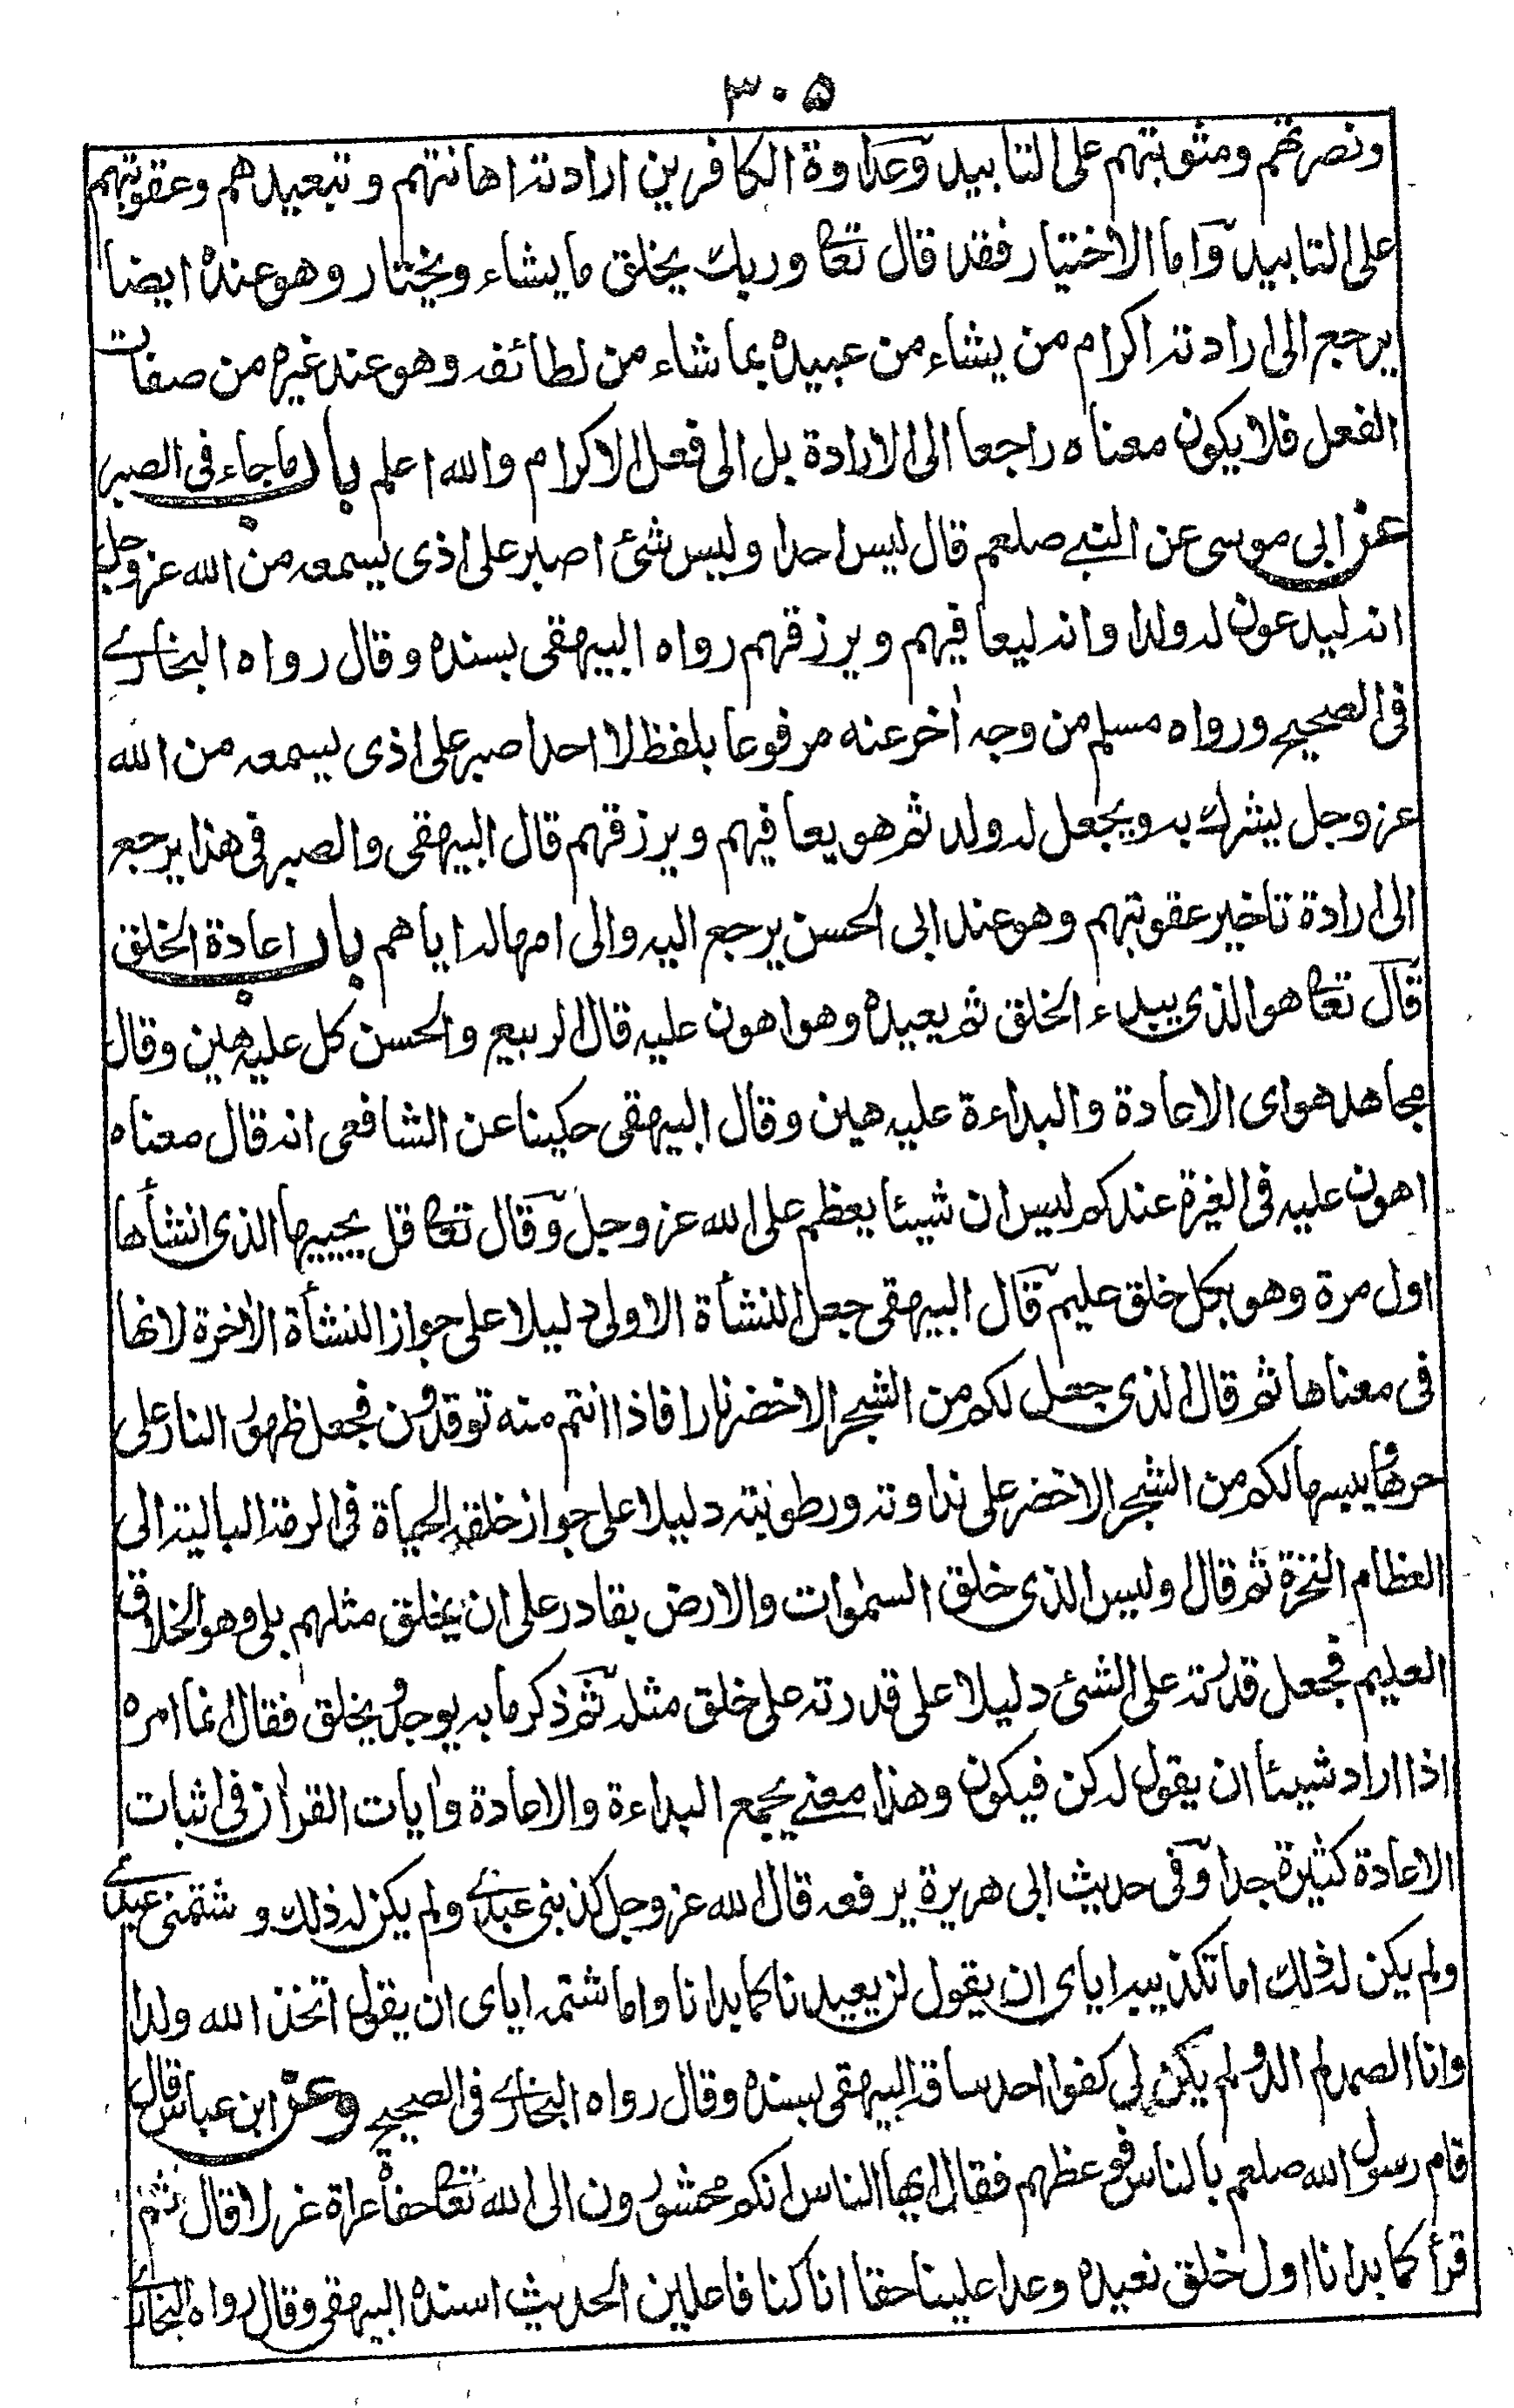 ٣٠٥
ونصرتهم ومثوبتهم على التابيد وعداوة الكافرين ارادته اهانتهم وتبعيدهم وعقوبتهم
على التابيد واما الاختيار فقد قال تعا وربك يخلق ما يشاء ويختار وهو عنده ايضا
يرجع الى ارادته اكرام من يشاء من عبيده بما شاء من لطائفه وهو عند غيره من صفات
الفعل فلا يكون معناه راجعا الى الارادة بل الى فعل الاكرام والله اعلم باب ما جاء فى الصبر
عن ابى موسى عن النبي صلعم قال ليس احدا وليس شئ اصبر على اذى يسمعه من الله عز وجل
انه ليدعون له ولدا وانه ليعافيهم ويرزقهم رواه البيهقى بسنده وقال رواه البخاري
فى الصحيح ورواه مسلم من وجه اٰخر عنه مرفوعا بلفظ لا احد اصبر على اذى يسمعه من الله
عز وجل يشرك به ويجعل له ولد ثم هو يعافيهم ويرزقهم قال البيهقى والصبر فى هذا يرجع
الى ارادة تاخير عقوبتهم وهو عند ابى الحسن يرجع اليه والى امهاله اياهم باب اعادة الخلق
قال تعا هو الذى يبدء الخلق ثم يعيده وهو اهون عليه قال الربيع والحسن كل عليه هين وقال
مجاهد هو اى الاعادة والبداءة عليه هين وقال البيهقى حكينا عن الشافعى انه قال معناه
اهون عليه فى الغيرة عندكم ليس ان شيئا يعظم على الله عز وجل وقال تعا قل يحييها الذى انشأها
اول مرة وهو بكل خلق عليم قال البيهقى جعل النشأة الاولى دليلا على جواز النشأة الاٰخرة لانها
فى معناها ثم قال الذى جعل لكم من الشجر الاخضر نارا فاذا انتم منه توقدون فجعل ظهور النار على
حرها ويبسها لكم من الشجر الاخضر على نداوته ورطوبته دليلا على جواز خلقه الحياة فى الرمة البالية الى
العظام النخرة ثم قال وليس الذى خلق السمٰوات والارض بقادر على ان يخلق مثلهم بلى وهو الخلاق
العليم فجعل قدرته على الشئ دليلا على قدرته على خلق مثله ثم ذكر ما به يوجد ويخلق فقال انما امره
اذا اراد شيئا ان يقول له كن فيكون وهذا معنى يجمع البداءة والاعادة واٰيات القراٰن فى اثبات
الاعادة كثيرة جدا وفى حديث ابى هريرة يرفعه قال الله عز وجل كذبنى عبدي ولم يكن له ذلك وشتمنى عبدي
ولم يكن له ذلك اما تكذيبه اياى ان يقول لن يعيدنا كما بدانا واما شتمه اياى ان يقول اتخذ الله ولدا
وانا الصمد لم الد ولم يكن لى كفوا احد ساقه البيهقى بسنده وقال رواه البخاري فى الصحيح وعن ابن عباس قال
قام رسول الله صلعم بالناس فوعظهم فقال ايها الناس انكم محشورون الى الله تعا حفاة عراة غرلا قال ثم
قرأ كما بدانا اول خلق نعيده وعدا علينا حقا انا كنا فاعلين الحديث اسنده البيهقى وقال رواه البخاري